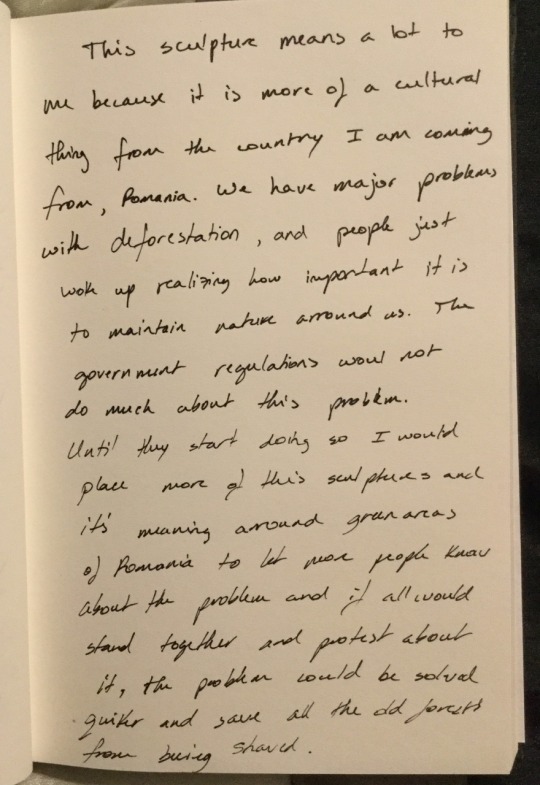 This sculpture means a lot to
me because it is more of a cultural
thing from the country I am coming
from, Romania. We have major problems
with deforestation, and people just
wok up realizing how important it is
to maintain nature arround us. The
government regulations woul not
do much about this problem.
Until they start doing so I would
place more of this sculptures and
it's meaning arround green areas
of Romania to let more people know
about the problem and if all would
stand together and protest about
it, the problem could be solved
quiker and save all the old forests
from being shaved.